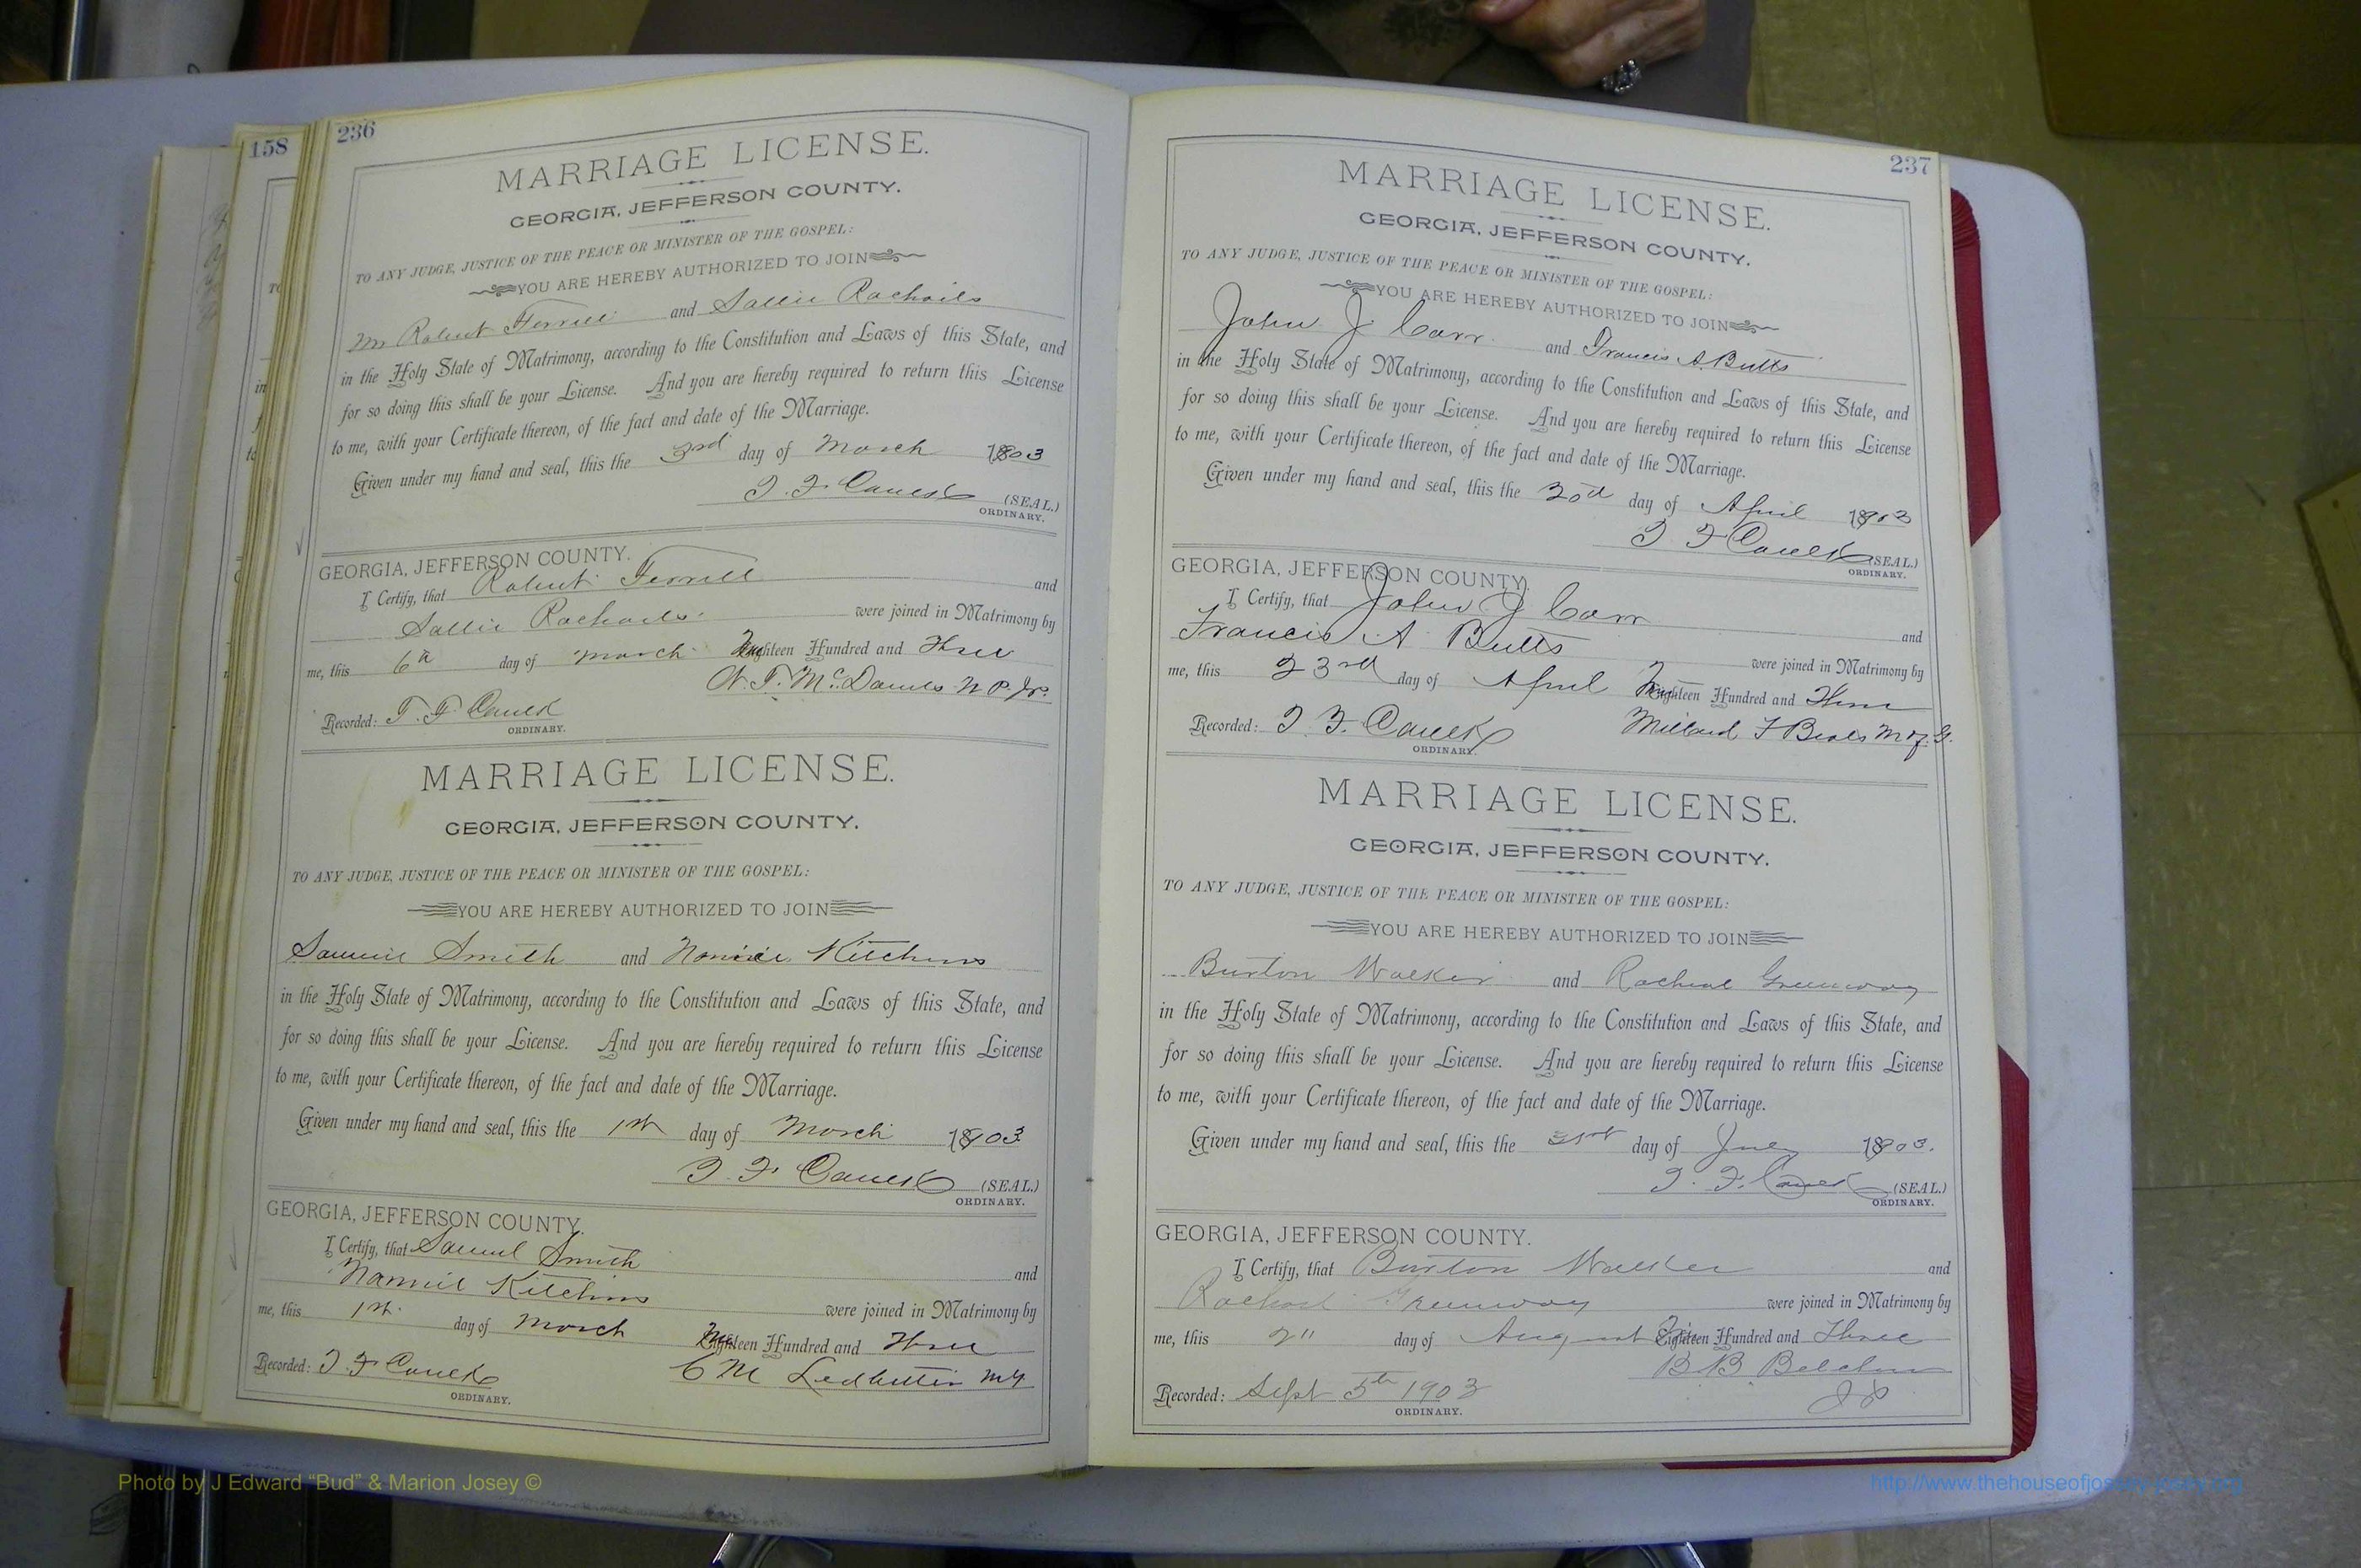 158
236
MARRIAGE LICENSE.
GEORGIA, JEFFERSON COUNTY.
TO ANY JUDGE, JUSTICE OF THE PEACE OR MINISTER OF THE GOSPEL:
YOU ARE HEREBY AUTHORIZED TO JOIN
Mr Robert Ferrell and Sallie Rachails
in the Holy State of Matrimony, according to the Constitution and Laws of this State, and
for so doing this shall be your License. And you are hereby required to return this License
to me, with your Certificate thereon, of the fact and date of the Marriage.
Given under my hand and seal, this the 3rd day of March 1903
(SEAL.)
ORDINARY.
GEORGIA, JEFFERSON COUNTY.
I Certify, that Robert Ferrell and
Sallie Rachails were joined in Matrimony by
me, this 6th day of March Hundred and Three
McDaniels N.P.
Recorded:
ORDINARY.
MARRIAGE LICENSE.
GEORGIA, JEFFERSON COUNTY.
TO ANY JUDGE, JUSTICE OF THE PEACE OR MINISTER OF THE GOSPEL:
YOU ARE HEREBY AUTHORIZED TO JOIN
Sammie Smith and Nannie Kitchens
in the Holy State of Matrimony, according to the Constitution and Laws of this State, and
for so doing this shall be your License. And you are hereby required to return this License
to me, with your Certificate thereon, of the fact and date of the Marriage.
Given under my hand and seal, this the 1st day of March 1903
(SEAL.)
ORDINARY.
GEORGIA, JEFFERSON COUNTY.
I Certify, that Samuel Smith and
Nannie Kitchins were joined in Matrimony by
me, this 1st day of March Hundred and Three
C M Ledbetter MG
Recorded:
ORDINARY.
237
MARRIAGE LICENSE.
GEORGIA, JEFFERSON COUNTY.
TO ANY JUDGE, JUSTICE OF THE PEACE OR MINISTER OF THE GOSPEL:
YOU ARE HEREBY AUTHORIZED TO JOIN
John J Carr and Francis A. Butts
in the Holy State of Matrimony, according to the Constitution and Laws of this State, and
for so doing this shall be your License. And you are hereby required to return this License
to me, with your Certificate thereon, of the fact and date of the Marriage.
Given under my hand and seal, this the day of April 1903
(SEAL.)
ORDINARY.
GEORGIA, JEFFERSON COUNTY.
I Certify, that John J Carr and
Francis A Butts were joined in Matrimony by
me, this 23rd day of April Hundred and Three
Millard F Beals M of G.
Recorded:
ORDINARY.
MARRIAGE LICENSE.
GEORGIA, JEFFERSON COUNTY.
TO ANY JUDGE, JUSTICE OF THE PEACE OR MINISTER OF THE GOSPEL:
YOU ARE HEREBY AUTHORIZED TO JOIN
Burton Walker and Racheal Greenway
in the Holy State of Matrimony, according to the Constitution and Laws of this State, and
for so doing this shall be your License. And you are hereby required to return this License
to me, with your Certificate thereon, of the fact and date of the Marriage.
Given under my hand and seal, this the 31st day of 1903.
(SEAL.)
ORDINARY.
GEORGIA, JEFFERSON COUNTY.
I Certify, that Burton Walker and
Greenway were joined in Matrimony by
me, this 2" day of August Hundred and Three
B B Belcher
JP
Recorded: Sept 5th 1903
ORDINARY.
Photo by J Edward “Bud” & Marion Josey ©